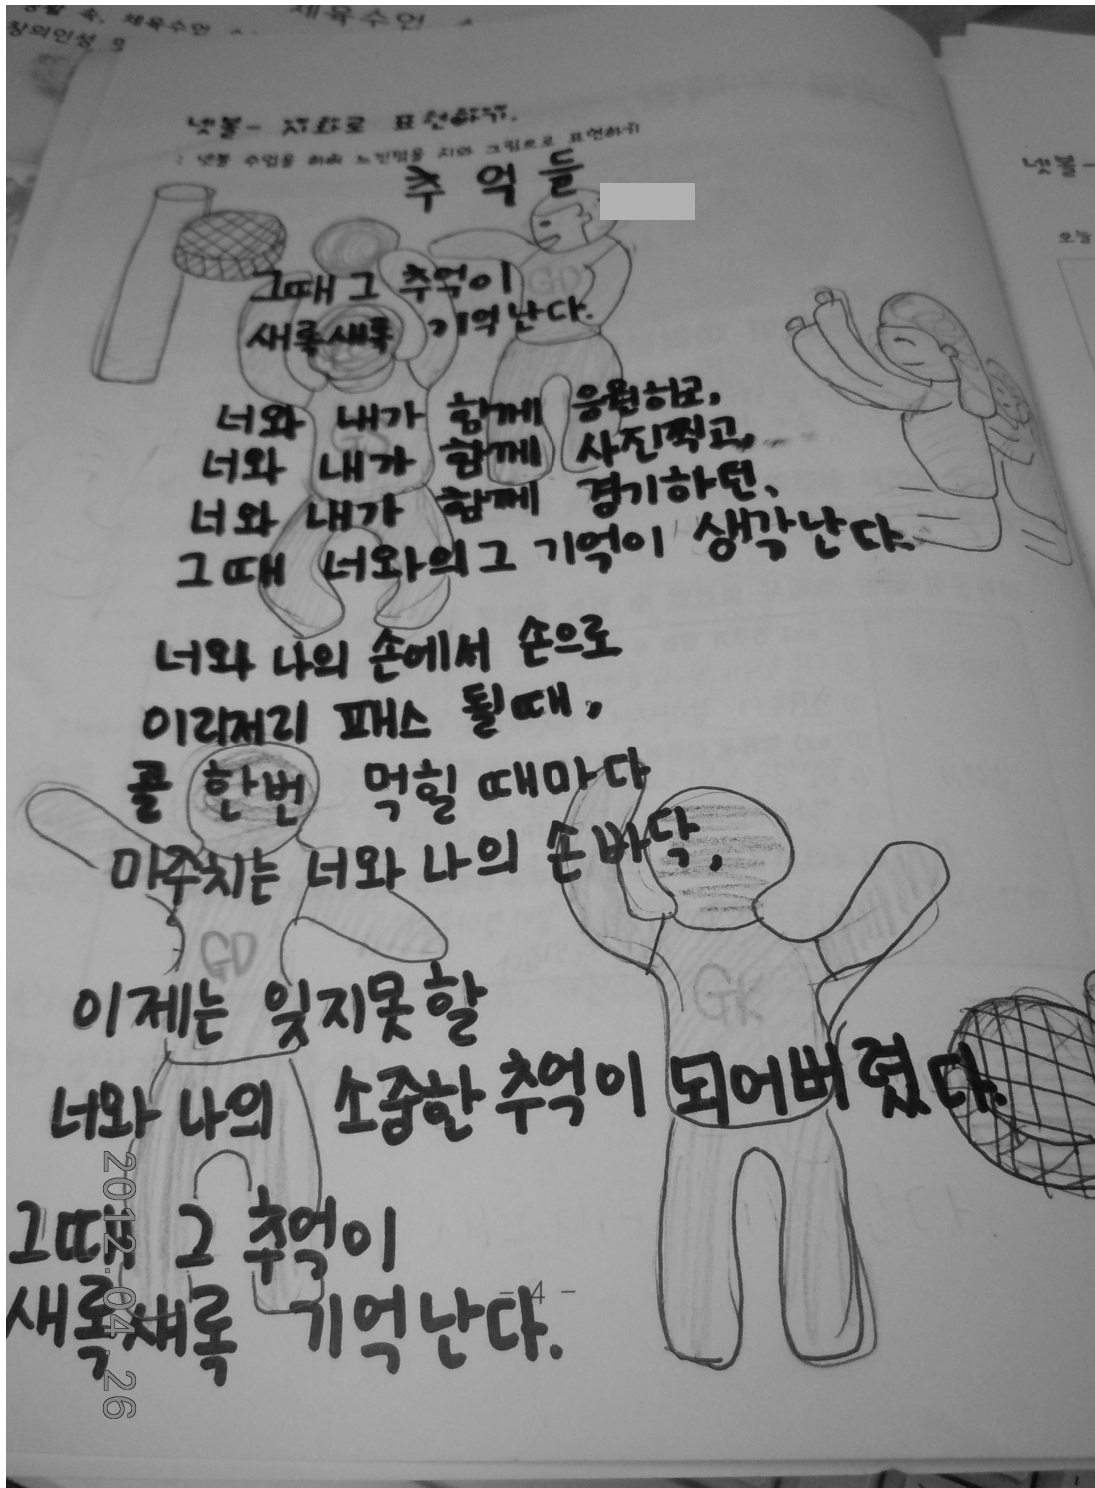 생활 속, 체육수업
체육수업
창의인성
넷볼- 시화로 표현하기.
: 넷볼 수업을 하며 느낀점을 시와 그림으로 표현하기
넷볼-
오늘
추억들
그때 그 추억이
새록새록 기억난다.
너와 내가 함께 응원하고,
너와 내가 함께 사진찍고,
너와 내가 함께 경기하던,
그때 너와의 그 기억이 생각난다.
너와 나의 손에서 손으로
이리저리 패스 될때,
골 한번 먹힐 때마다
마주치는 너와 나의 손바닥,
이제는 잊지못할
너와 나의 소중한 추억이 되어버렸다.
그때 그 추억이
새록새록 기억난다.
GD
GD
GD
GK
- 4 -
2012.04.26